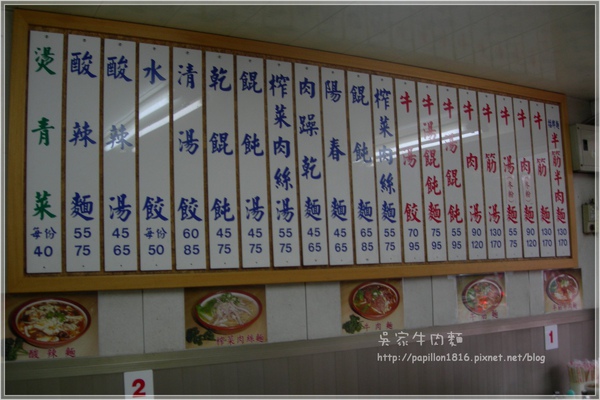 半筋半肉麵
130
170
牛筋麵
130
170
牛肉麵
90
120
牛湯麵
55
75
牛筋湯
130
170
牛肉湯
90
120
牛湯餛飩
55
95
牛湯餛飩麵
75
95
牛湯餃
70
95
榨菜肉絲麵
55
75
餛飩麵
65
85
陽春麵
45
65
肉躁乾麵
45
65
榨菜肉絲湯
55
75
餛飩湯
45
75
乾餛飩
45
75
清湯餃
60
85
水餃
每份
50
酸辣湯
45
65
酸辣麵
55
75
燙青菜
每份
40
酸辣麵
榨菜肉絲麵
牛肉麵
1
2
吳家牛肉麵
http://papillon1816.pixnet.net/blog